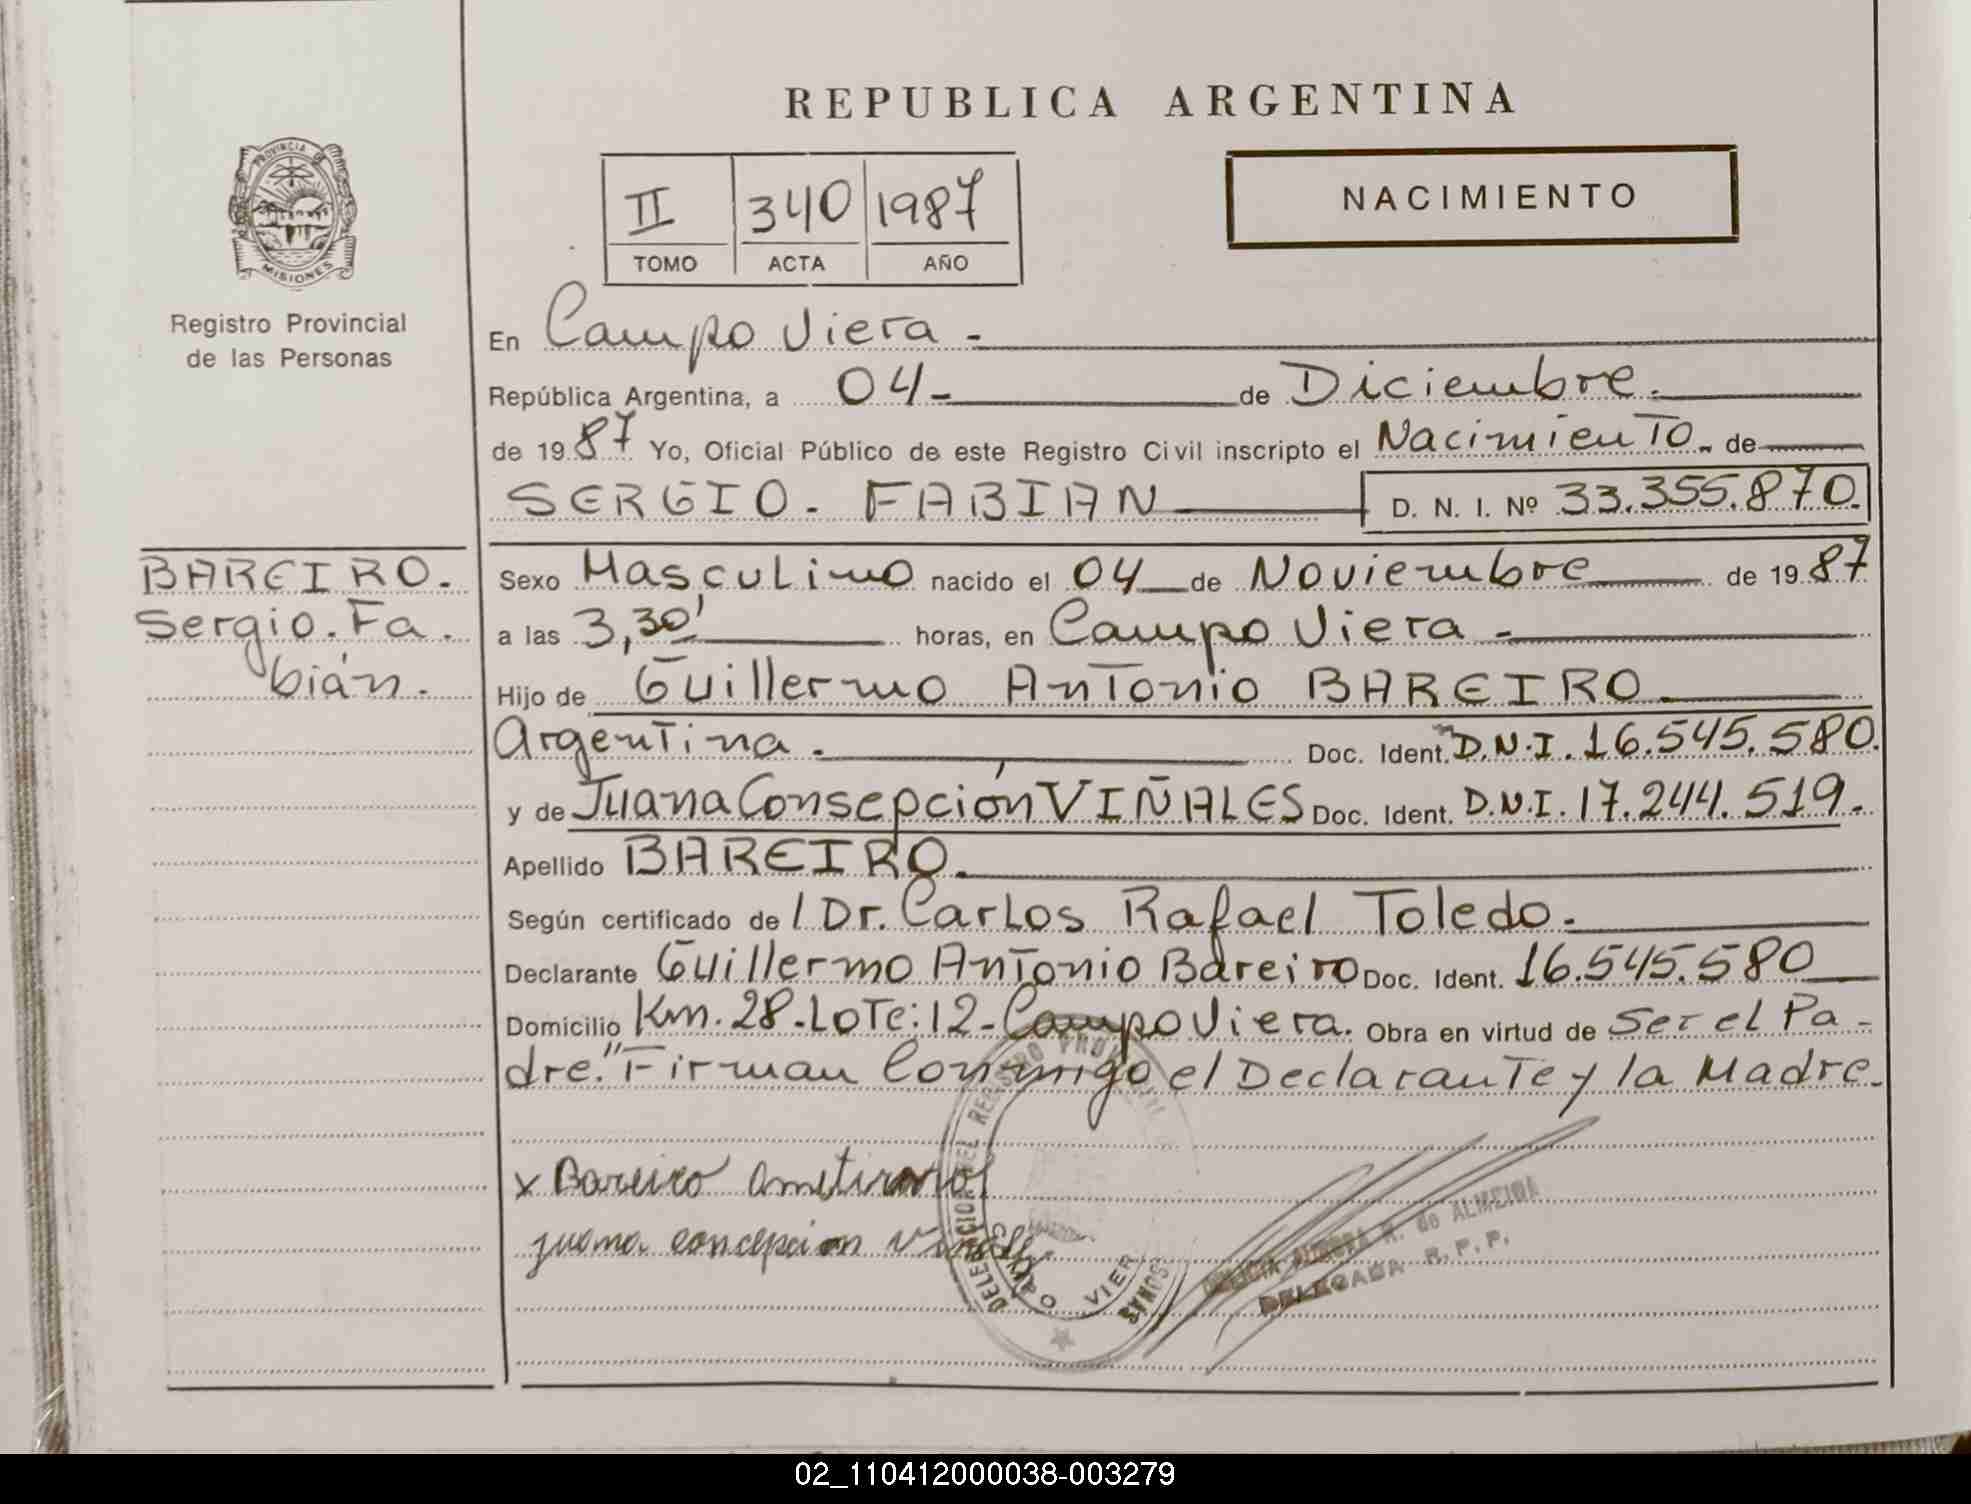 REPUBLICA ARGENTINA
PROVINCIA DE
MISIONES
Registro Provincial
de las Personas
II 340 1987
TOMO ACTA AÑO
NACIMIENTO
En Campo Viera -
República Argentina, a 04- de Diciembre.
de 1987 Yo, Oficial Público de este Registro Civil inscripto el Nacimiento - de
SERGIO - FABIAN D. N. I. Nº 33.355.870.
BAREIRO.
Sergio. Fa.
bián.
Sexo Masculino nacido el 04 de Noviembre de 1987
a las 3,30' horas, en Campo Viera -
Hijo de Guillermo Antonio BAREIRO.
Argentina. Doc. Ident. D.N.I. 16.545.580.
y de Juana Consepción VIÑALES Doc. Ident. D.N.I. 17.244.519.
Apellido BAREIRO.
Según certificado de / Dr. Carlos Rafael Toledo.
Declarante Guillermo Antonio Bareiro Doc. Ident. 16.545.580
Domicilio Km. 28-Lote: 12-Campo Viera. Obra en virtud de Ser el Pa-
dre." Firman Conmigo el Declarante y la Madre.
x Bareiro
juana concepcion
DELEGACION DEL REGISTRO PROVINCIAL
SONAS
CAMPO VIERA
H. de ALMEIDA
DELEGADA R. P. P.
02_110412000038-003279